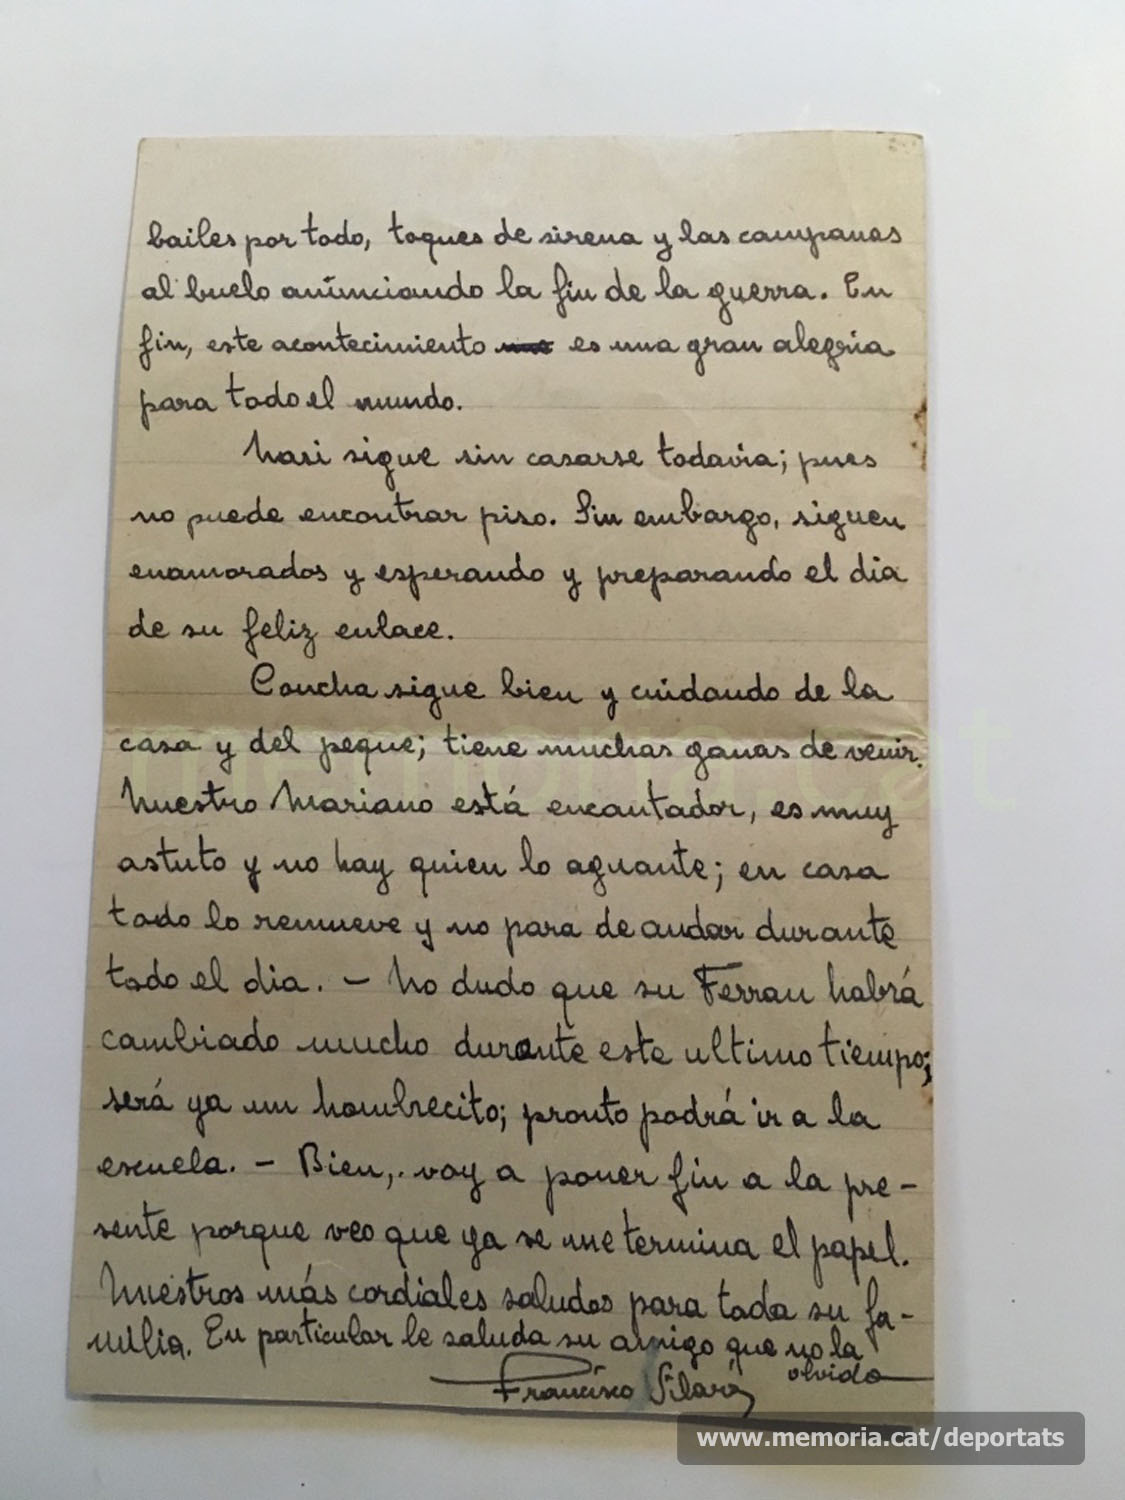 bailes por todo, toques de sirena y las campanas
al buelo anunciando la fin de la guerra. En
fin, este acontecimiento es una gran alegria
para todo el mundo.
Nasi sigue sin casarse todavia; pues
no puede encontrar piso. Sin embargo, siguen
enamorados y esperando y preparando el dia
de su feliz enlace.
Concha sigue bien y cuidando de la
casa y del peque; tiene muchas ganas de venir.
Nuestro Mariano está encantador, es muy
astuto y no hay quien lo aguante; en casa
todo lo remueve y no para de andar durante
todo el dia. - No dudo que su Ferran habrá
cambiado mucho durante este ultimo tiempo;
será ya un hombrecito; pronto podrá ir a la
escuela. - Bien, voy a poner fin a la pre-
sente porque veo que ya se me termina el papel.
Nuestros más cordiales saludos para toda su fa-
milia. En particular le saluda su amigo que no la
olvida
Francisco
www.memoria.cat/deportats
memoria.cat